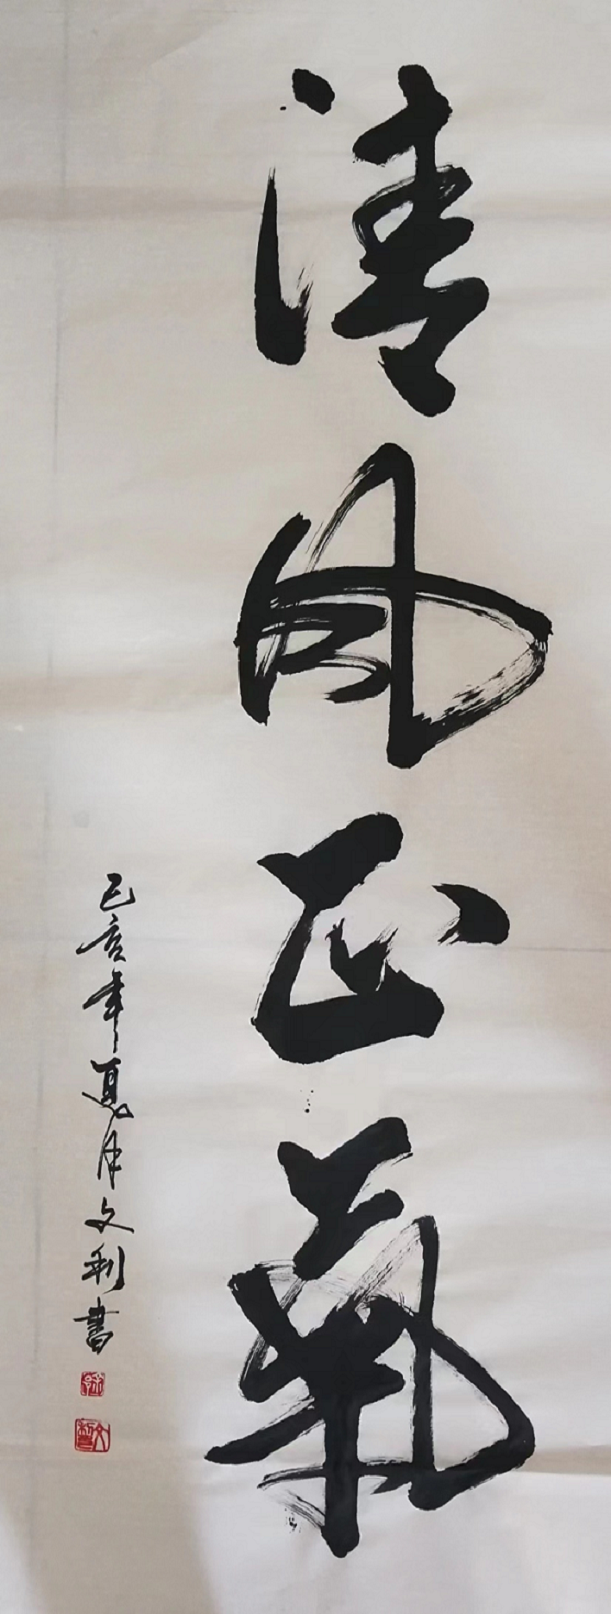 清风正氣
己亥年夏月文利書